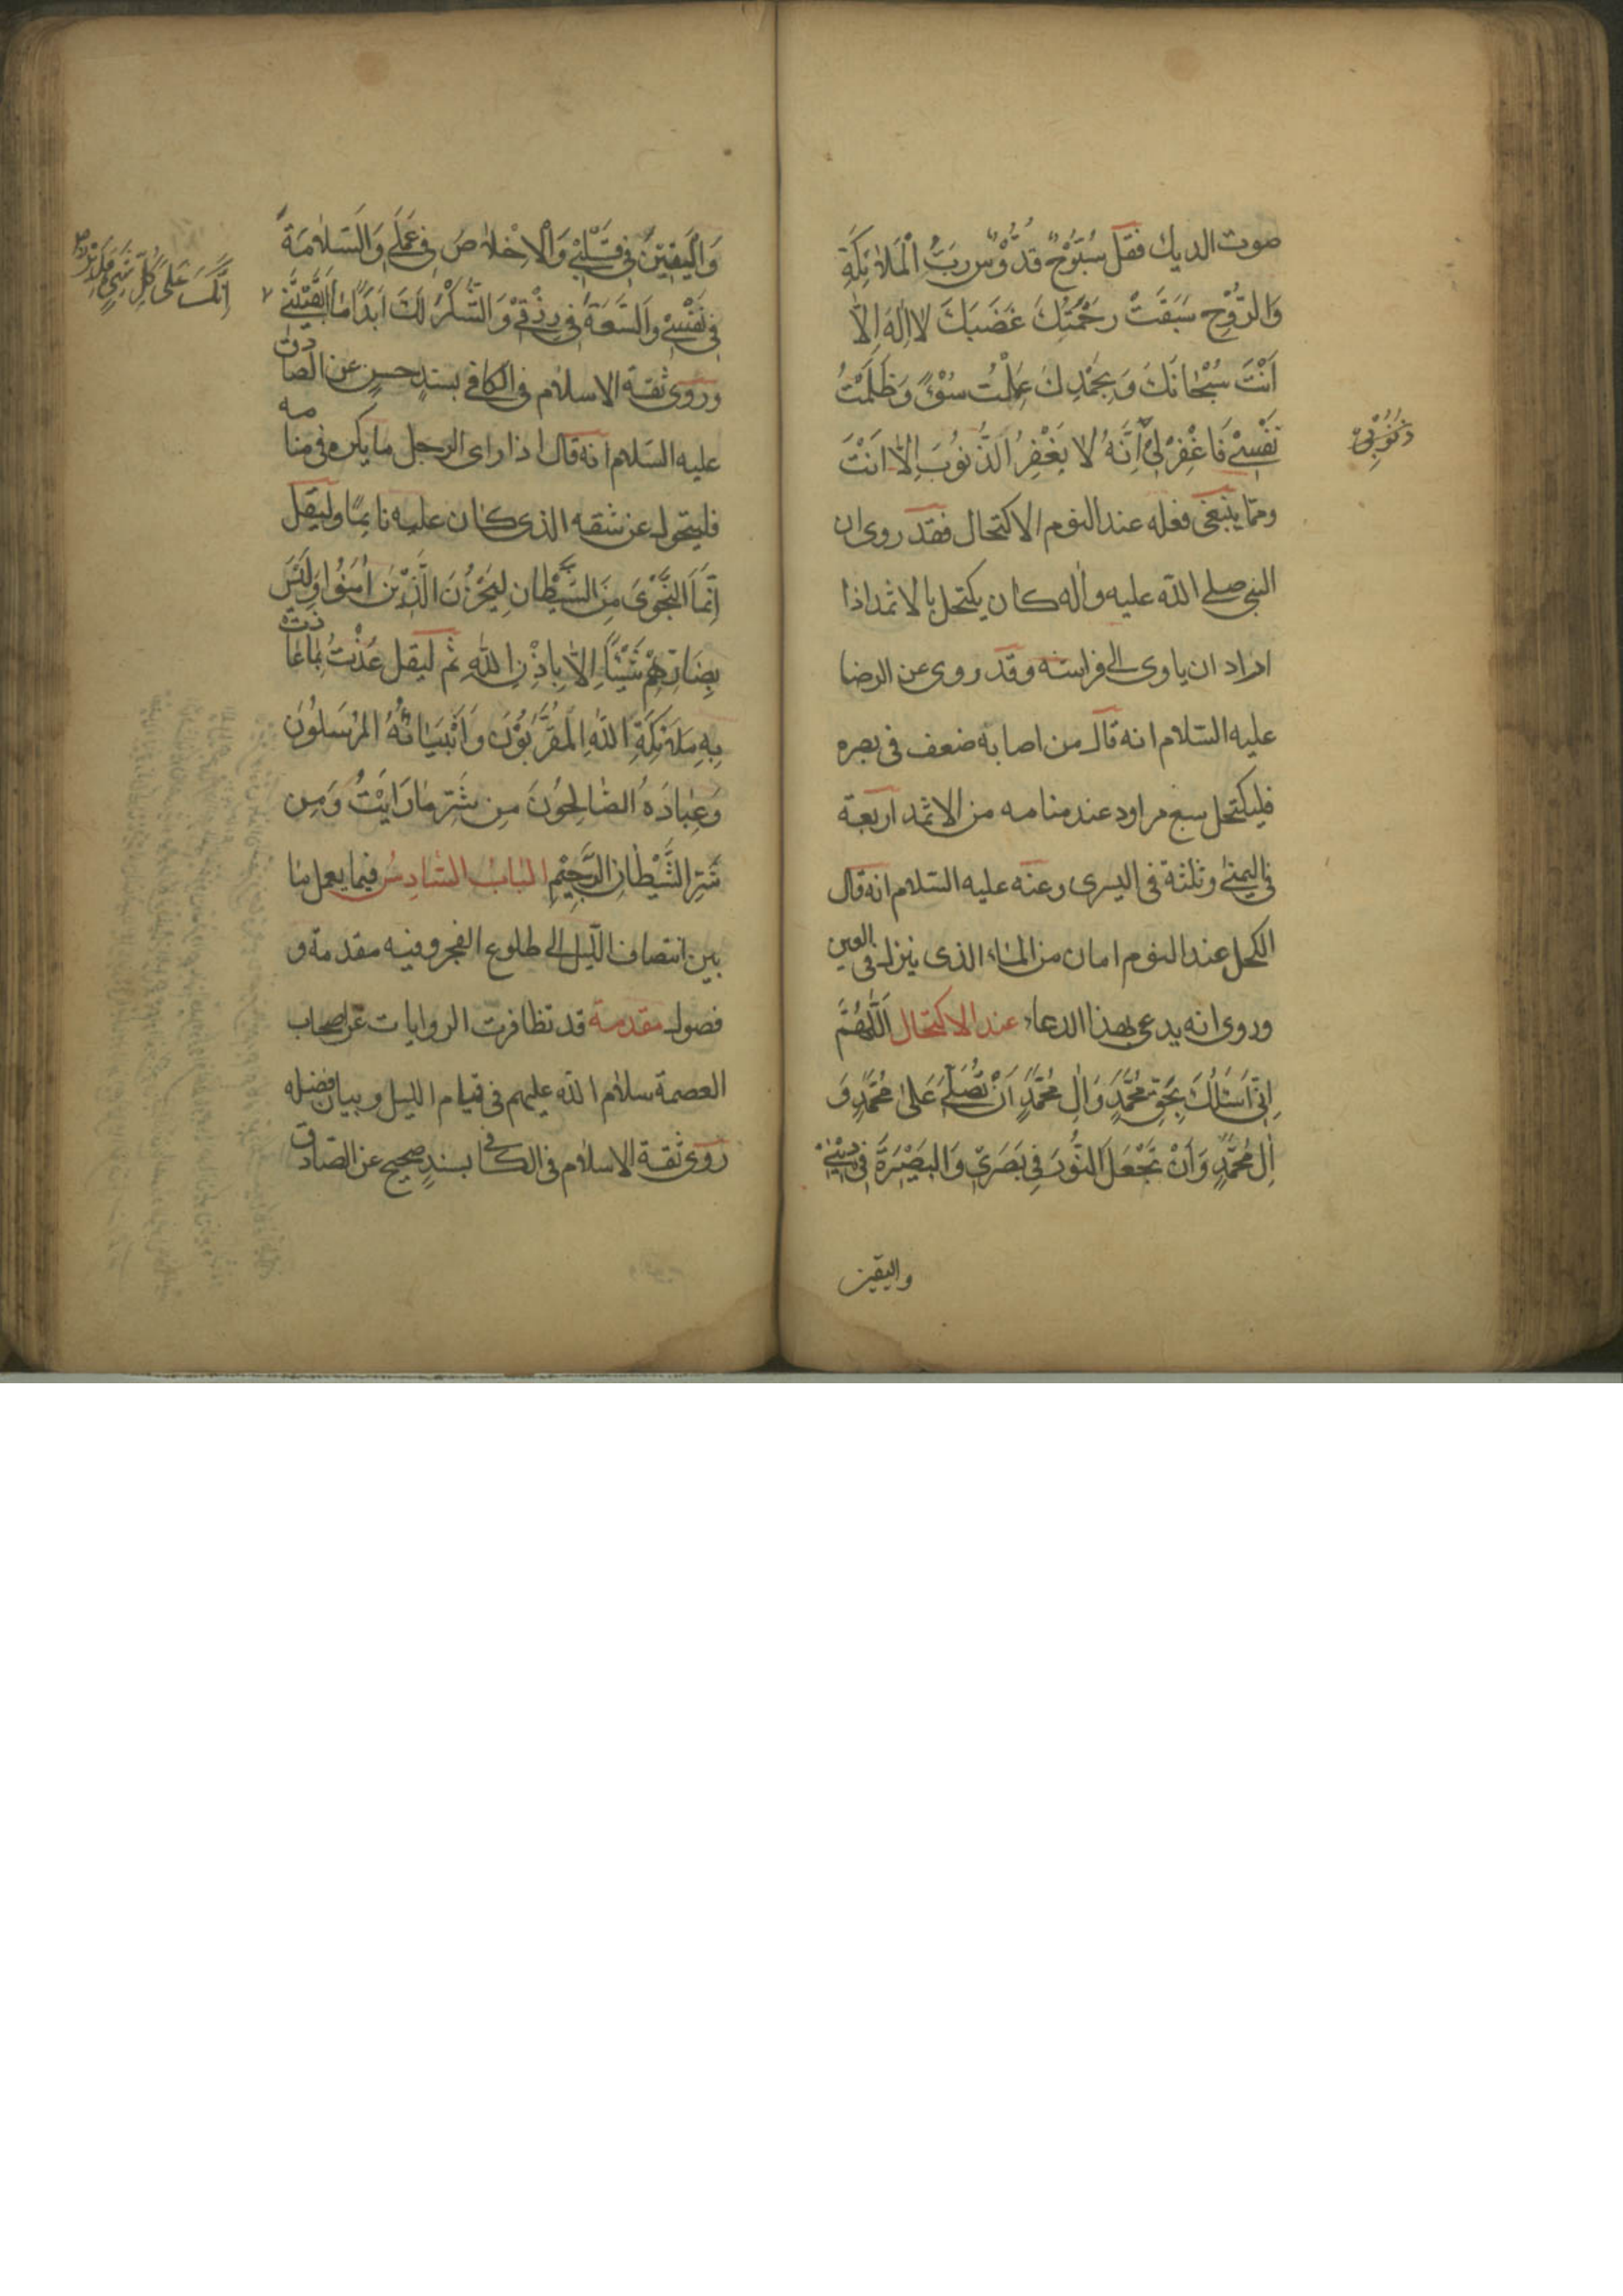 صوت الديك فقل سُبُّوحٌ قُدُّوسٌ رَبُّ الْمَلائِكَةِ
وَالرُّوحِ سَبَقَتْ رَحْمَتُكَ غَضَبَكَ لا اِلٰهَ اِلّا
اَنْتَ سُبْحانَكَ وَبِحَمْدِكَ عَمِلْتُ سُوْءً وَظَلَمْتُ
نَفْسِي فَاغْفِرْ لِي اِنَّهُ لا يَغْفِرُ الذُّنُوبَ اِلّا اَنْتَ
ذُنُوبِي
وممّا ينبغي فعله عند النوم الاكتحال فقد روى ان
النبي صلى الله عليه واٰله كان يكتحل بالاثمد اذا
اراد ان ياوى الى فراشه وقد روى عن الرضا
عليه السّلام انه قال من اصابه ضعف فى بصره
فليكتحل سبع مراود عند منامه من الاثمد اربعة
فى اليمنى وثلثة فى اليسرى وعنه عليه السّلام انه قال
الكحل عند النوم امان من الماء الذى ينزل فى العين
وروى انه يدعى بهذا الدعاء عند الاكتحال اَللّٰهُمَّ
اِنِّي اَسْئَلُكَ بِحَقِّ مُحَمَّدٍ وَاٰلِ مُحَمَّدٍ اَنْ تُصَلِّيَ عَلىٰ مُحَمَّدٍ وَ
اٰلِ مُحَمَّدٍ وَاَنْ تَجْعَلَ النُّورَ فِي بَصَرِي وَالبَصِيْرَةَ فِي دِيْنِي
واليقين
وَالْيَقِيْنَ فِي قَلْبِي وَالْاِخْلاصَ فِي عَمَلِي وَالسَّلامَةَ
فِي نَفْسِي وَالسَّعَةَ فِي رِزْقِي وَالشُّكْرَ لَكَ اَبَدًا مٰا اَبْقَيْتَنِي
اِنَّكَ عَلىٰ كُلِّ شَيْءٍ قَدِيْرٌ
وروى ثقة الاسلام فى الكافى بسندٍ حسنٍ عن الصادق
عليه السّلام انه قال اذا راى الرجل ما يكره فى منامه
فليتحول عن شقه الذى كان عليه نائمًا وليقل
اِنَّمَا النَّجْوىٰ مِنَ الشَّيْطٰانِ لِيَحْزُنَ الَّذِيْنَ اٰمَنُوا وَلَيْسَ
بِضٰارِّهِمْ شَيْئًا اِلّا بِاِذْنِ اللّٰهِ ثم ليقل عُذْتُ بِمٰا عٰاذَتْ
بِهِ مَلٰئِكَةُ اللّٰهِ الْمُقَرَّبُوْنَ وَاَنْبِيٰائُهُ المُرْسَلُوْنَ
وَعِبٰادُهُ الصّٰالِحُوْنَ مِنْ شَرِّ مٰا رَاَيْتُ وَمِنْ
شَرِّ الشَّيْطٰانِ الرَّجِيْمِ الباب السّادس فيما يعمل ما
بين انتصاف اللّيل الى طلوع الفجر وفيه مقدمة و
فصول مقدمة قد تظافرت الروايات عن اصحاب
العصمة سلام الله عليهم فى قيام الليل وبيان فضله
روى ثقة الاسلام فى الكافى بسندٍ صحيحٍ عن الصّادق